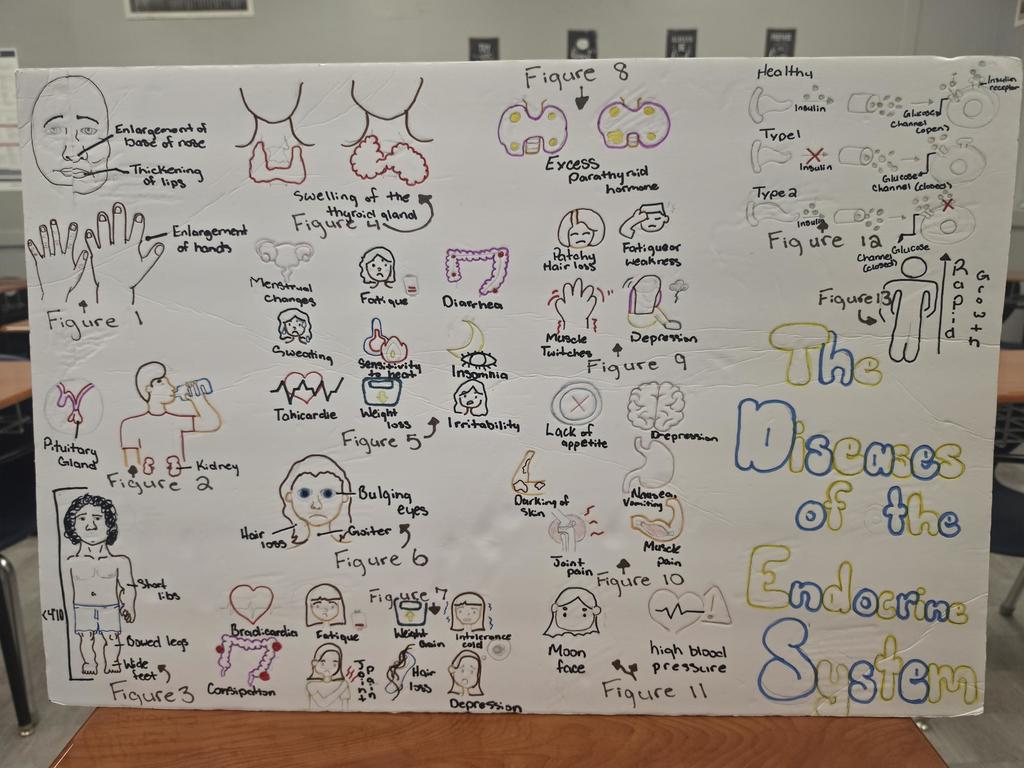 Enlargement of
base of nose
Thickening
of lips
Enlargement
of hands
Figure 1
Pituitary
Gland
Kidney
Figure 2
<4'10
Short
libs
Bowed legs
Wide
feet
Figure 3
Swelling of the
thyroid gland
Figure 4
Menstrual
Changes
Fatique
Diarrhea
Sweating
Sensitivity
to heat
Insomnia
Tahicardie
Weight
loss
Irritability
Figure 5
Bulging
eyes
Hair
loss
Goiter
Figure 6
Figure 7
Bradicardia
Fatigue
Weight
Intolerance
cold
Constipation
Joint
Pain
Hair
loss
Depression
Figure 8
Excess
Parathyroid
hormone
Patchy
Hair loss
Fatigue or
weakness
Muscle
Twitches
Depression
Figure 9
Lack of
appetite
Depression
Darking of
Skin
Nausea,
Vomiting
Joint
pain
Muscle
pain
Figure 10
Moon
face
high blood
pressure
Figure 11
Healthy
Insulin
Glucose
Channel
(open)
Insulin
receptor
Type 1
Insulin
Glucose
Channel (closed)
Type 2
Insulin
Glucose
Channel
(closed)
Figure 12
Figure 13
Rapid
Growth
The
Diseases
of the
Endocrine
System